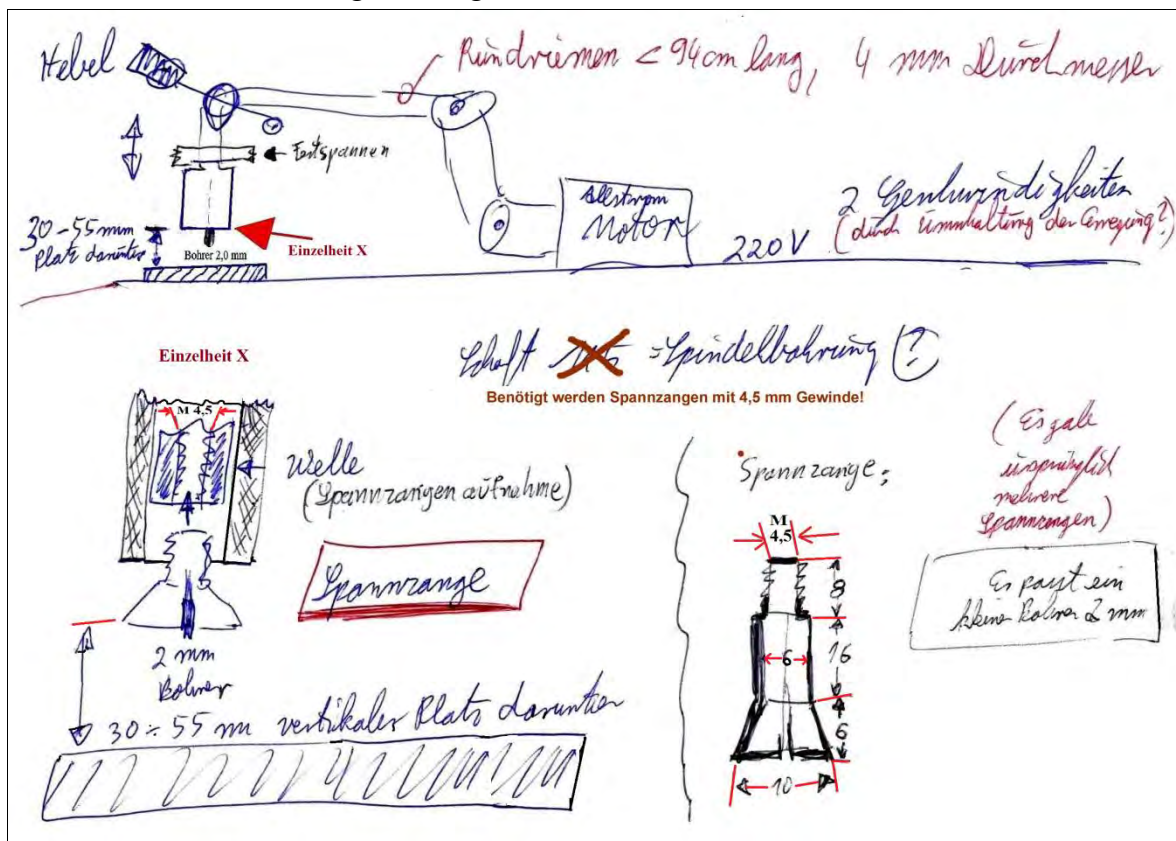 Hebel
Rundriemen < 94 cm lang, 4 mm Durchmesser
Festspannen
30-55 mm
Platz darunter
Bohrer 2,0 mm
Einzelheit X
Allstrom
Motor
220V
2 Geschwindigkeiten
(durch Umschaltung der Erregung?)
Einzelheit X
Schaft = Spindelbohrung ?
Benötigt werden Spannzangen mit 4,5 mm Gewinde!
M 4,5
Welle
(Spannzangenaufnahme)
Spannzange
2 mm
Bohrer
30÷55 mm vertikaler Platz darunter
Spannzange:
M
4,5
8
6
16
6
10
(Es gab
ursprünglich
mehrere
Spannzangen)
Es passt ein
kleiner Bohrer 2 mm